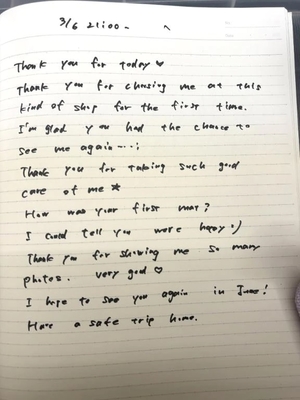 3/6 21:00-
Thank you for today ♡
Thank you for chasing me at this
kind of shop for the first time.
I'm glad you had the chance to
see me again
Thank you for taking such good
care of me *
How was your first
I could tell you were happy :)
Thank you for showing me so many
photos. very good ♡
I hope to see you again in June!
Have a safe trip home.